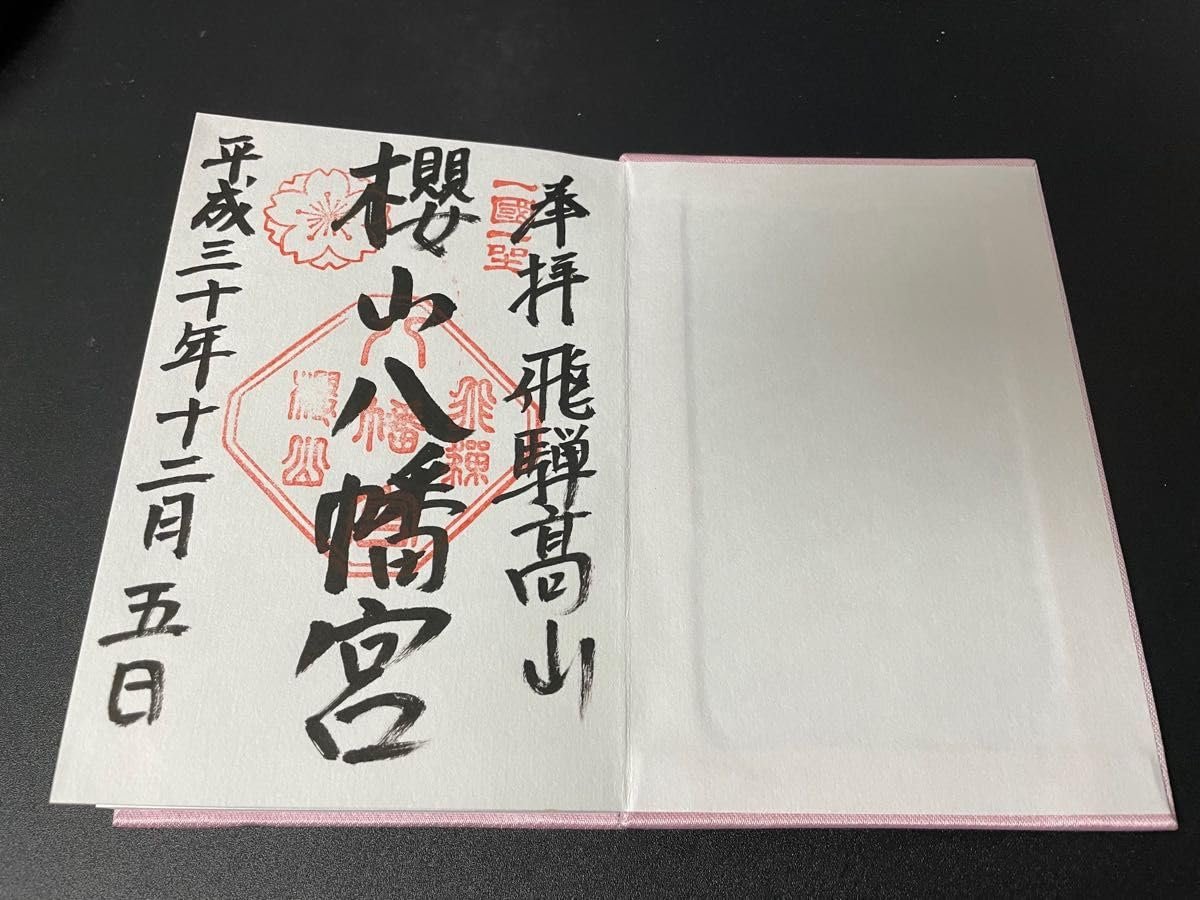 奉拝 飛騨高山
一國一社
櫻山八幡宮
飛騨
八幡宮
櫻山
平成三十年十二月五日